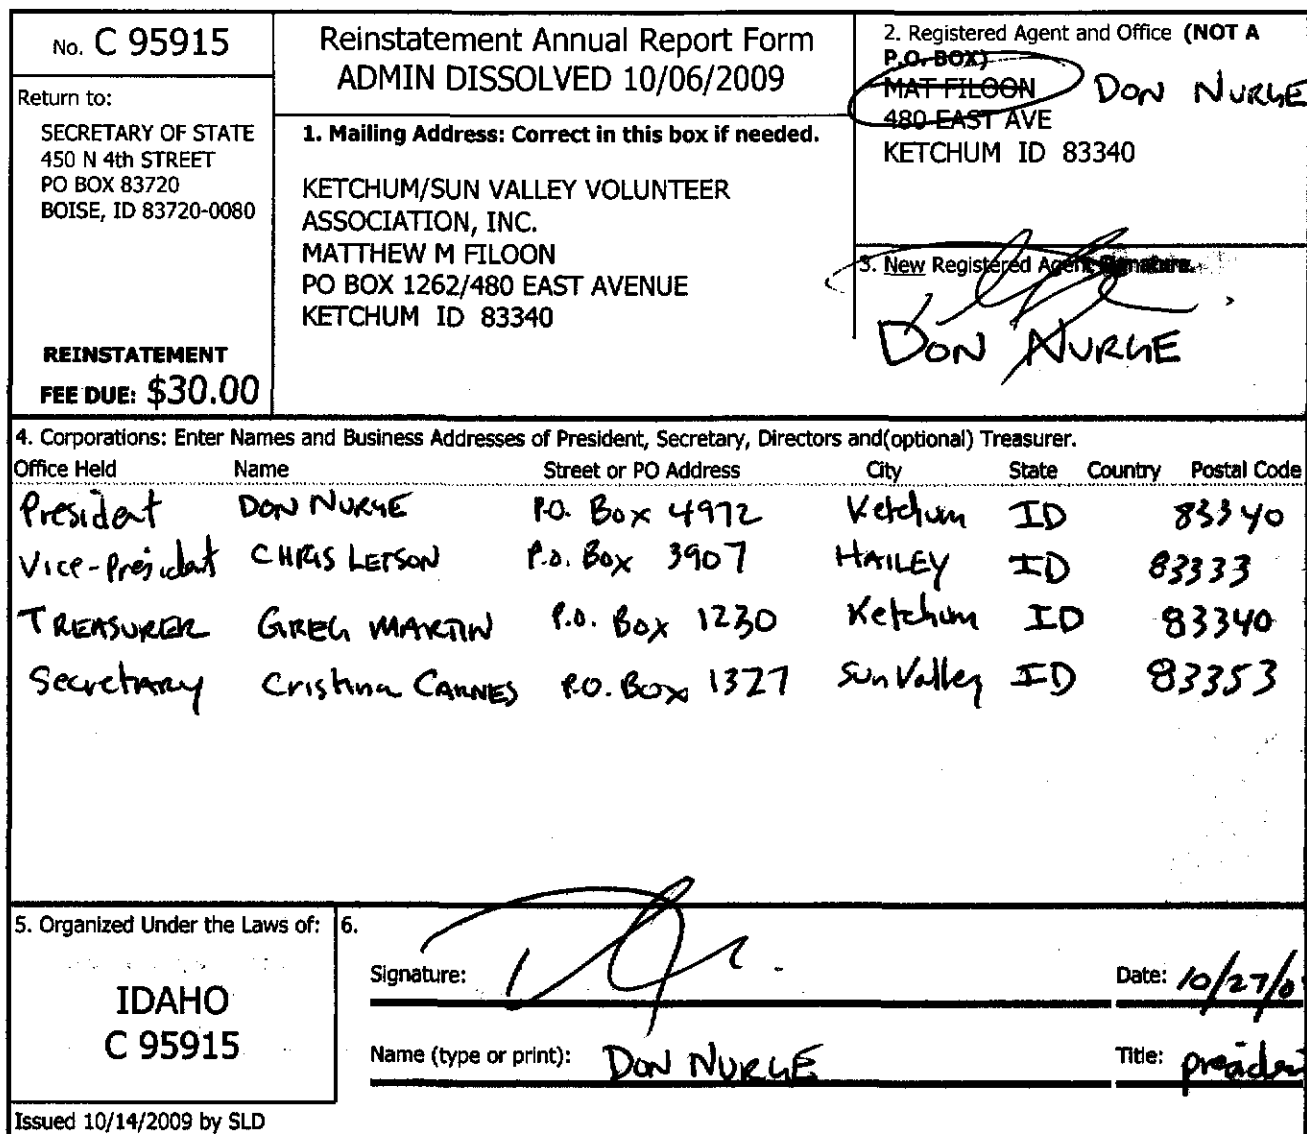 No. C 95915
Return to:
SECRETARY OF STATE
450 N 4th STREET
PO BOX 83720
BOISE, ID 83720-0080
REINSTATEMENT
FEE DUE: $30.00
Reinstatement Annual Report Form
ADMIN DISSOLVED 10/06/2009
1. Mailing Address: Correct in this box if needed.
KETCHUM/SUN VALLEY VOLUNTEER
ASSOCIATION, INC.
MATTHEW M FILOON
PO BOX 1262/480 EAST AVENUE
KETCHUM ID 83340
2. Registered Agent and Office (NOT A
P.O. BOX)
MAT FILOON DON NURGE
480 EAST AVE
KETCHUM ID 83340
3. New Registered Agent Signature.
DON NURGE
4. Corporations: Enter Names and Business Addresses of President, Secretary, Directors and(optional) Treasurer.
Office Held Name Street or PO Address City State Country Postal Code
President DON NURGE P.O. Box 4972 Ketchum ID 83340
Vice-President CHRIS LETSON P.O. Box 3907 HAILEY ID 83333
TREASURER GREG MARTIN P.O. Box 1230 Ketchum ID 83340
Secretary Cristina CARNES P.O. Box 1327 Sun Valley ID 83353
5. Organized Under the Laws of:
IDAHO
C 95915
6.
Signature:
Date: 10/27/0
Name (type or print): DON NURGE
Title: presiden
Issued 10/14/2009 by SLD